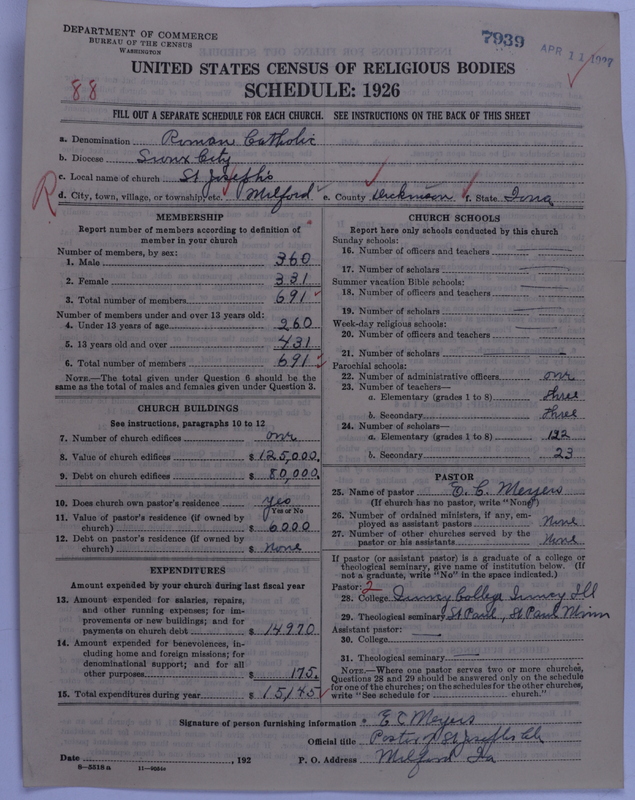 DEPARTMENT OF COMMERCE
BUREAU OF THE CENSUS
WASHINGTON
7939
APR 11
UNITED STATES CENSUS OF RELIGIOUS BODIES
SCHEDULE: 1926
88
FILL OUT A SEPARATE SCHEDULE FOR EACH CHURCH. SEE INSTRUCTIONS ON THE BACK OF THIS SHEET
a. Denomination Roman Catholic
b. Diocese Sioux City
c. Local name of church St Joseph's
R
d. City, town, village, or township, etc. Milford e. County Dickinson f. State Iowa
MEMBERSHIP
Report number of members according to definition of
member in your church
Number of members, by sex:
1. Male 360
2. Female 331
3. Total number of members 691
Number of members under and over 13 years old:
4. Under 13 years of age 260
5. 13 years old and over 431
6. Total number of members 691
NOTE.—The total given under Question 6 should be the
same as the total of males and females given under Question 3.
CHURCH BUILDINGS
See instructions, paragraphs 10 to 12
7. Number of church edifices one
8. Value of church edifices $ 125,000.
9. Debt on church edifices $ 80,000.
10. Does church own pastor's residence yes
Yes or No
11. Value of pastor's residence (if owned by
church) $ 6000
12. Debt on pastor's residence (if owned by
church) $ None
EXPENDITURES
Amount expended by your church during last fiscal year
13. Amount expended for salaries, repairs,
and other running expenses; for im-
provements or new buildings; and for
payments on church debt $ 14970
14. Amount expended for benevolences, in-
cluding home and foreign missions; for
denominational support; and for all
other purposes $ 175.
15. Total expenditures during year $ 15145
CHURCH SCHOOLS
Report here only schools conducted by this church
Sunday schools:
16. Number of officers and teachers
17. Number of scholars
Summer vacation Bible schools:
18. Number of officers and teachers
19. Number of scholars
Week-day religious schools:
20. Number of officers and teachers
21. Number of scholars
Parochial schools:
22. Number of administrative officers one
23. Number of teachers—
a. Elementary (grades 1 to 8) three
b. Secondary three
24. Number of scholars—
a. Elementary (grades 1 to 8) 122
b. Secondary 23
PASTOR
25. Name of pastor E. C. Meyers
(If church has no pastor, write "None")
26. Number of ordained ministers, if any, em-
ployed as assistant pastors None
27. Number of other churches served by the
pastor or his assistants None
If pastor (or assistant pastor) is a graduate of a college or
theological seminary, give name of institution below. (If
not a graduate, write "No" in the space indicated.)
Pastor: 2
28. College Quincy College Quincy Ill
29. Theological seminary St Paul, St Paul Minn
Assistant pastor:
30. College
31. Theological seminary
NOTE.—Where one pastor serves two or more churches,
Questions 28 and 29 should be answered only on the schedule
for one of the churches; on the schedules for the other churches,
write "See schedule for church."
Signature of person furnishing information E C Meyers
Official title Pastor of St Josephs Ch
Date , 192 P. O. Address Milford Ia
8—5518 a